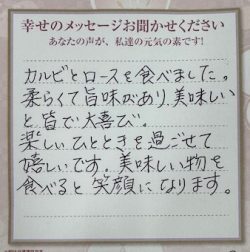 幸せのメッセージお聞かせください
あなたの声が、私達の元気の素です!
カルビとロースを食べました。
柔らくて旨味があり、美味しい
と皆で大喜び。
楽しいひとときを過ごせて
嬉しいです。美味しい物を
食べると笑顔になります。